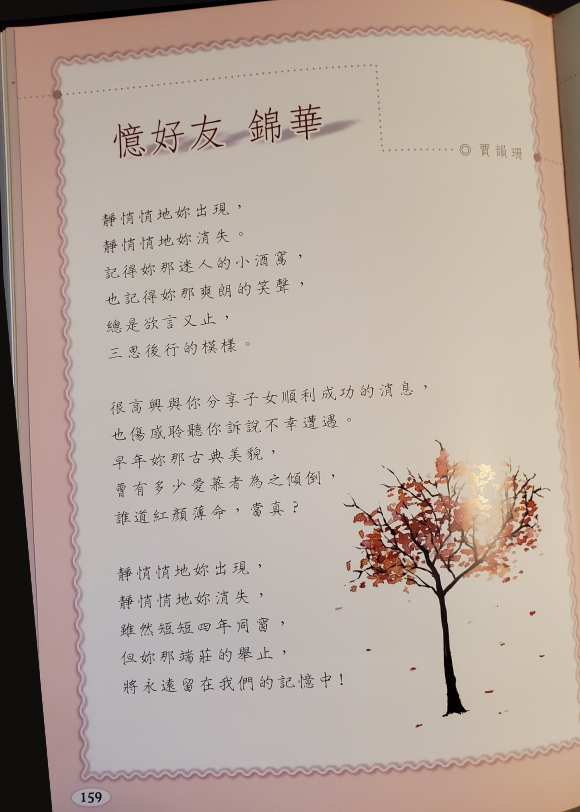 憶好友 錦華
◎ 賈韻珊
靜悄悄地妳出現，
靜悄悄地妳消失。
記得妳那迷人的小酒窩，
也記得妳那爽朗的笑聲，
總是欲言又止，
三思後行的模樣。
很高興與你分享子女順利成功的消息，
也傷感聆聽你訴說不幸遭遇。
早年妳那古典美貌，
曾有多少愛慕者為之傾倒，
誰道紅顏薄命，當真？
靜悄悄地妳出現，
靜悄悄地妳消失，
雖然短短四年同窗，
但妳那端莊的舉止，
將永遠留在我們的記憶中！
159